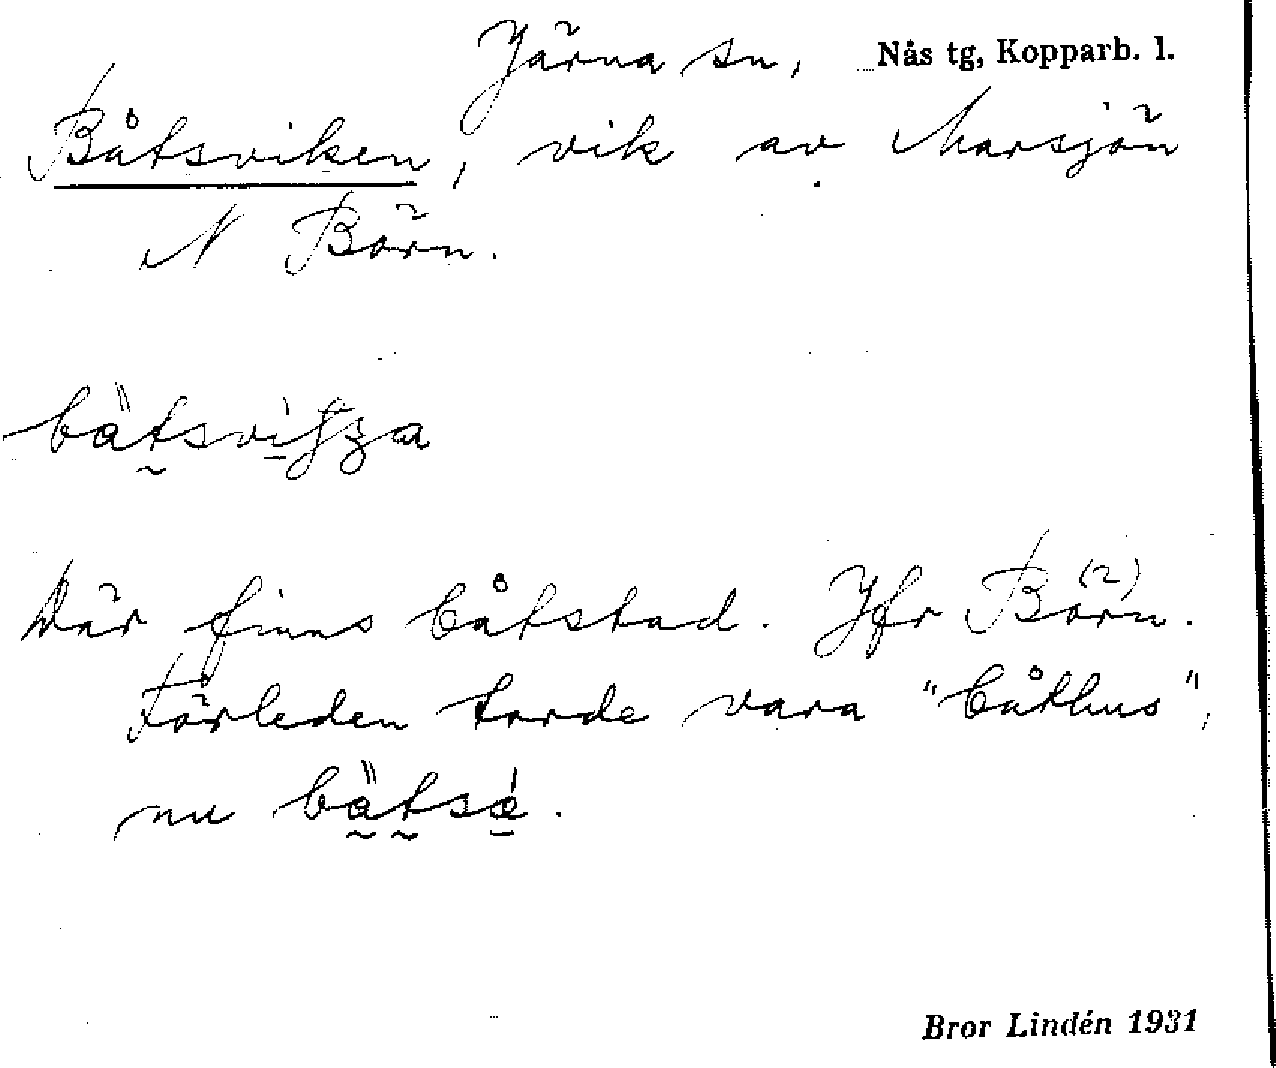 Järna sn, Nås tg, Kopparb. l.
Båtsviken, vik av Marsjön
N Börn.
Där finns båtstad. Jfr Börn (2).
Förleden torde vara "båthus",
nu
Bror Lindén 1931